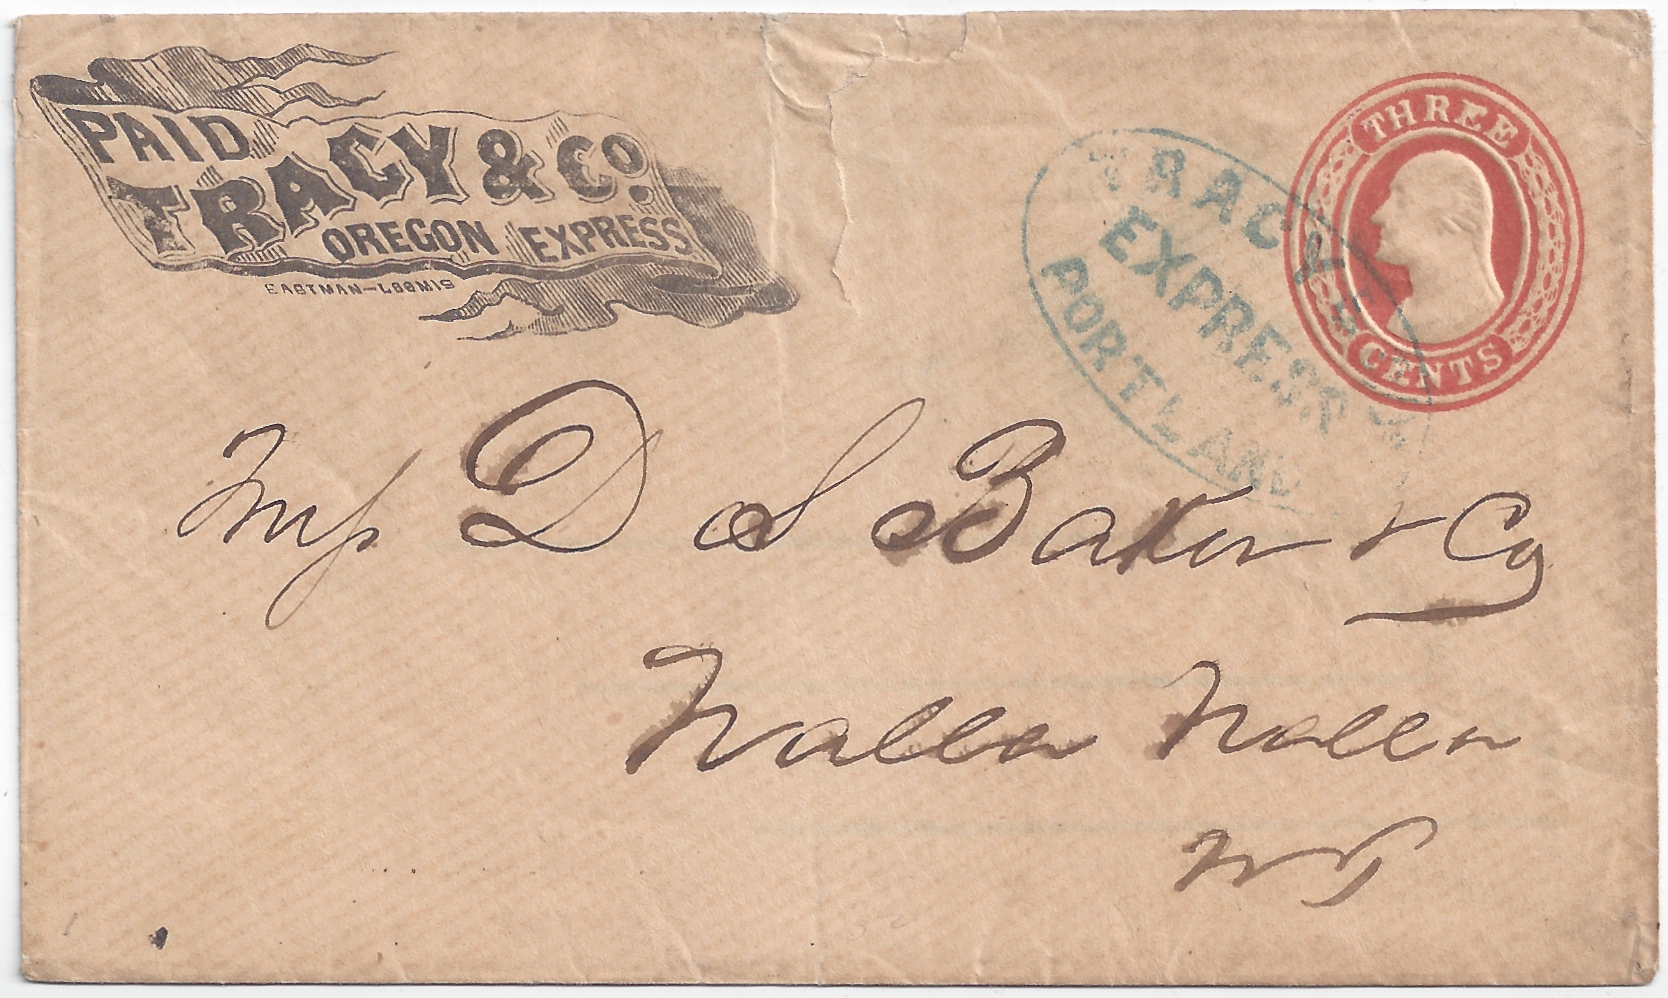 PAID
TRACY & Co.
OREGON EXPRESS
EASTMAN-LOOMIS
THREE
CENTS
TRACY'S
EXPRESS
PORTLAND
D S Baker & Co
Walla Walla
WT